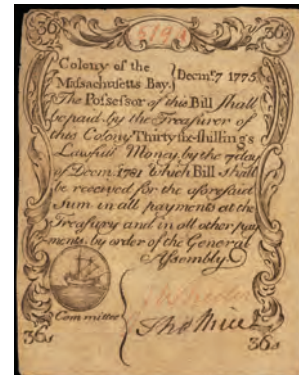 36s 36s
Colony of the
Massachusetts Bay. } Decmr. 7 1775.
The Possessor of this Bill shall
be paid by the Treasurer of
this Colony Thirty six-shillings
Lawfull Money by the 7 day
of Decm. 1781 which Bill shall
be received for the aforesaid
sum in all payments at the
Treasury and in all other pay
ments by order of the General
Assembly.
Committee
36s 36s